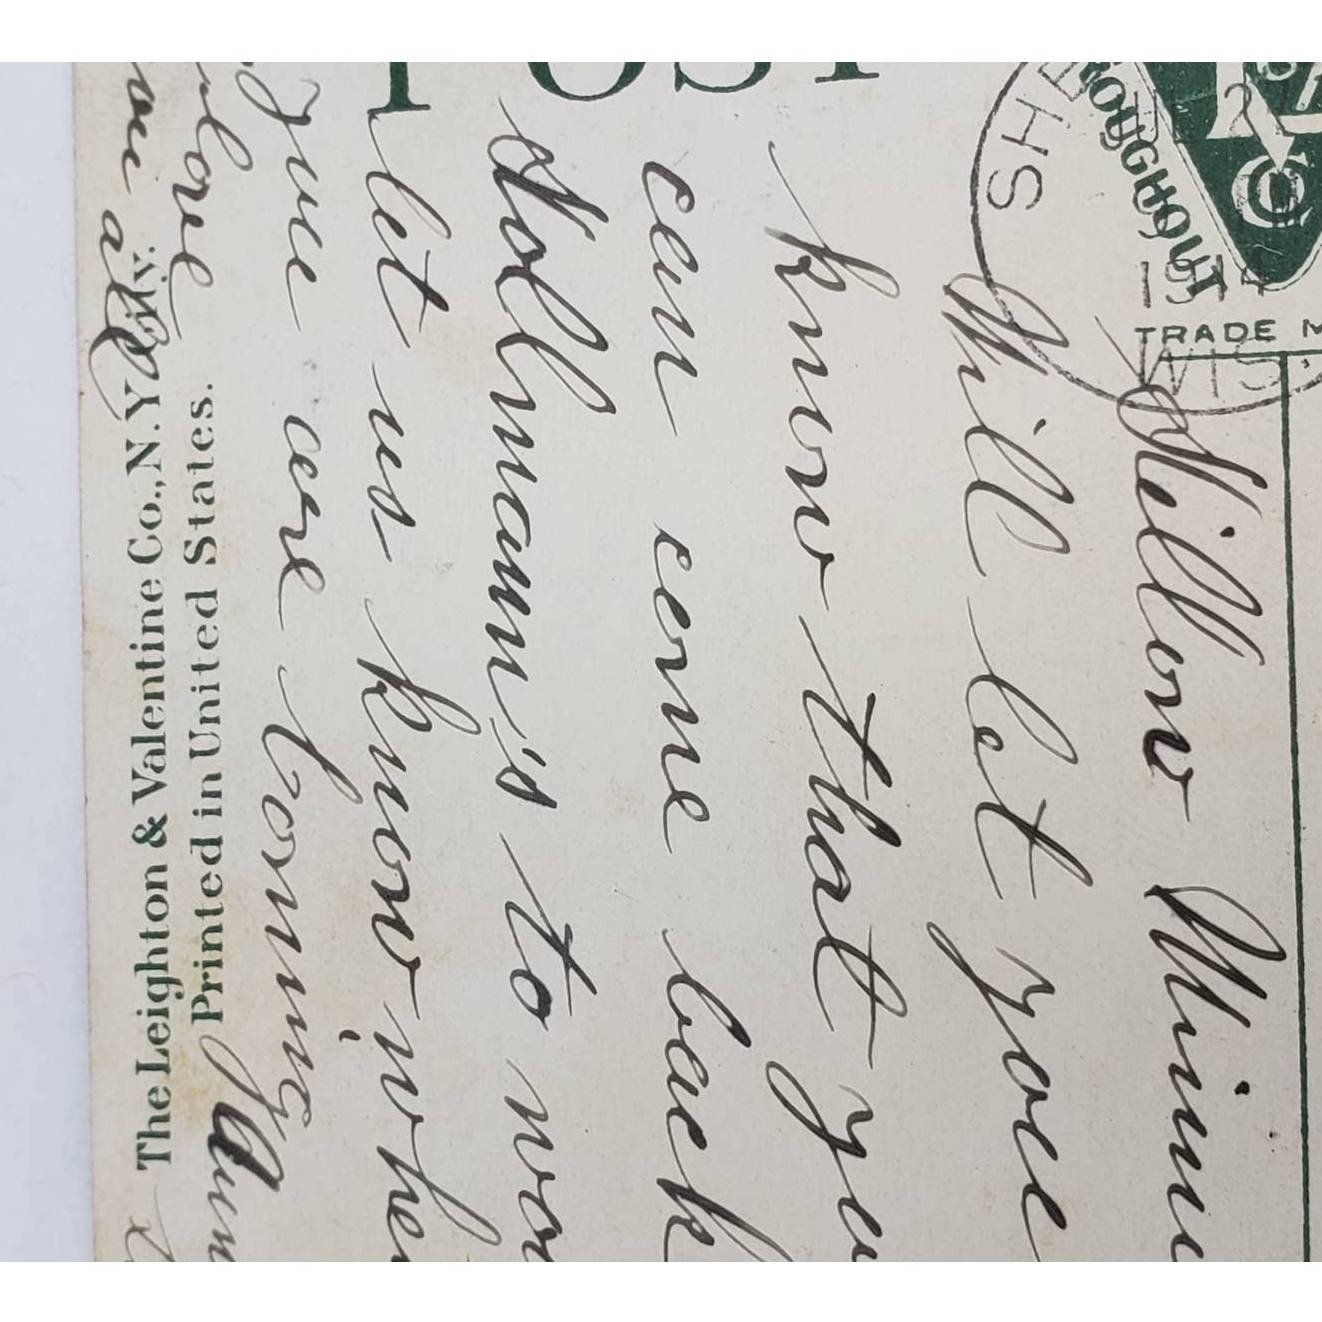 POST
SHE
THROUGHOUT
1914
TRADE M
WIS.
Hellow Minn
Will let you
know that you
can come back
Hollmann's to wor
let us know whe
you are coming
love
you all
The Leighton & Valentine Co., N.Y. City.
Printed in United States.